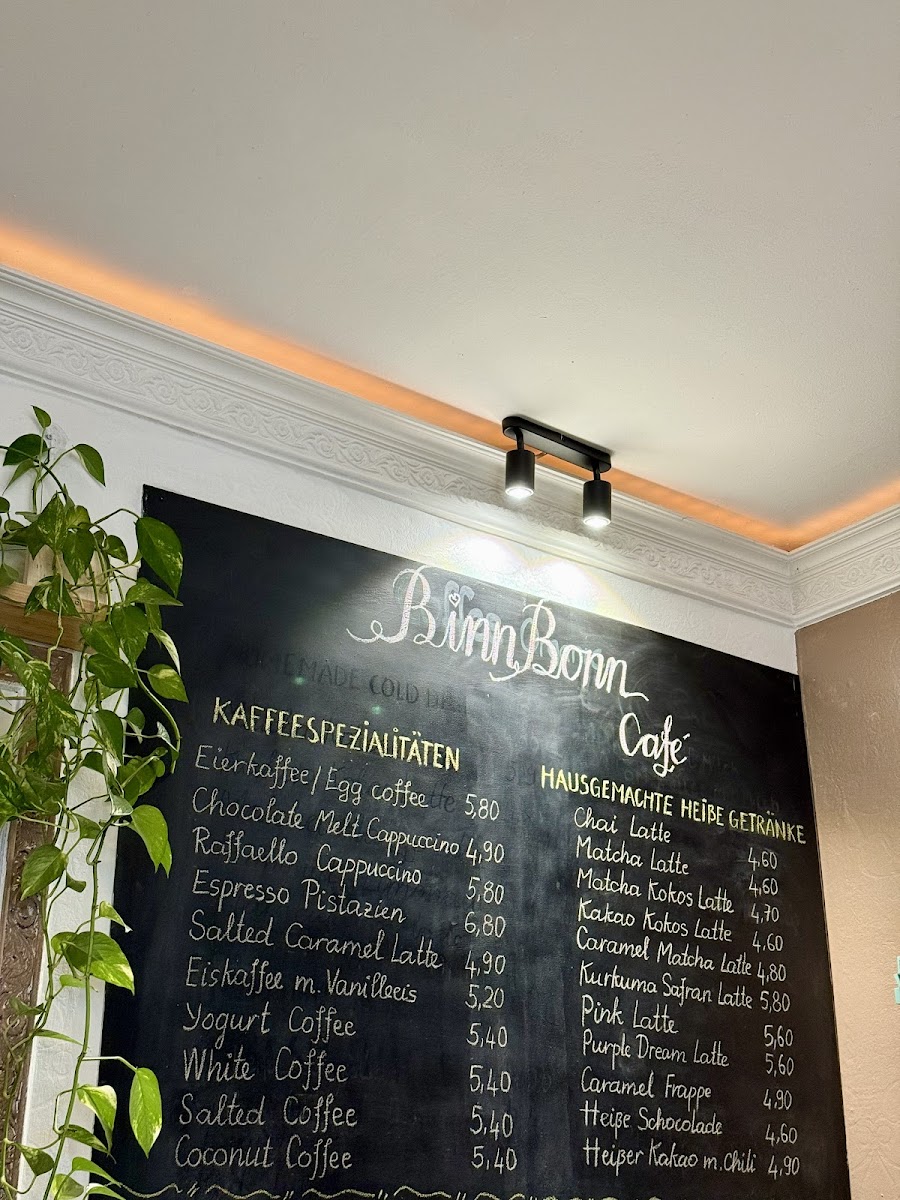 BinnBonn
Café
HOMEMADE COLD
KAFFEESPEZIALITÄTEN
Eierkaffee/Egg coffee 5,80
Chocolate Melt Cappuccino 4,90
Raffaello Cappuccino 5,80
Espresso Pistazien 6,80
Salted Caramel Latte 4,90
Eiskaffee m. Vanilleeis 5,20
Yogurt Coffee 5,40
White Coffee 5,40
Salted Coffee 5,40
Coconut Coffee 5,40
HAUSGEMACHTE HEIßE GETRÄNKE
Chai Latte 4,60
Matcha Latte 4,60
Matcha Kokos Latte 4,70
Kakao Kokos Latte 4,60
Caramel Matcha Latte 4,80
Kurkuma Safran Latte 5,80
Pink Latte 5,60
Purple Dream Latte 5,60
Caramel Frappe 4,90
Heiße Schocolade 4,60
Heißer Kakao m. Chili 4,90